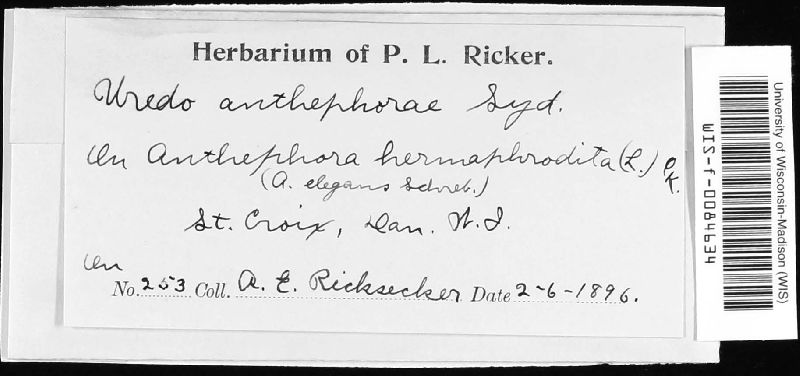 Herbarium of P. L. Ricker.
Uredo anthephorae Syd.
On Anthephora hermaphrodita (L.) O.K.
(A. elegans Schreb.)
St. Croix, Dan. W.I.
On
No. 253 Coll. A. E. Ricksecker Date 2-6-1896.
University of Wisconsin-Madison (WIS)
WIS-f-0084634